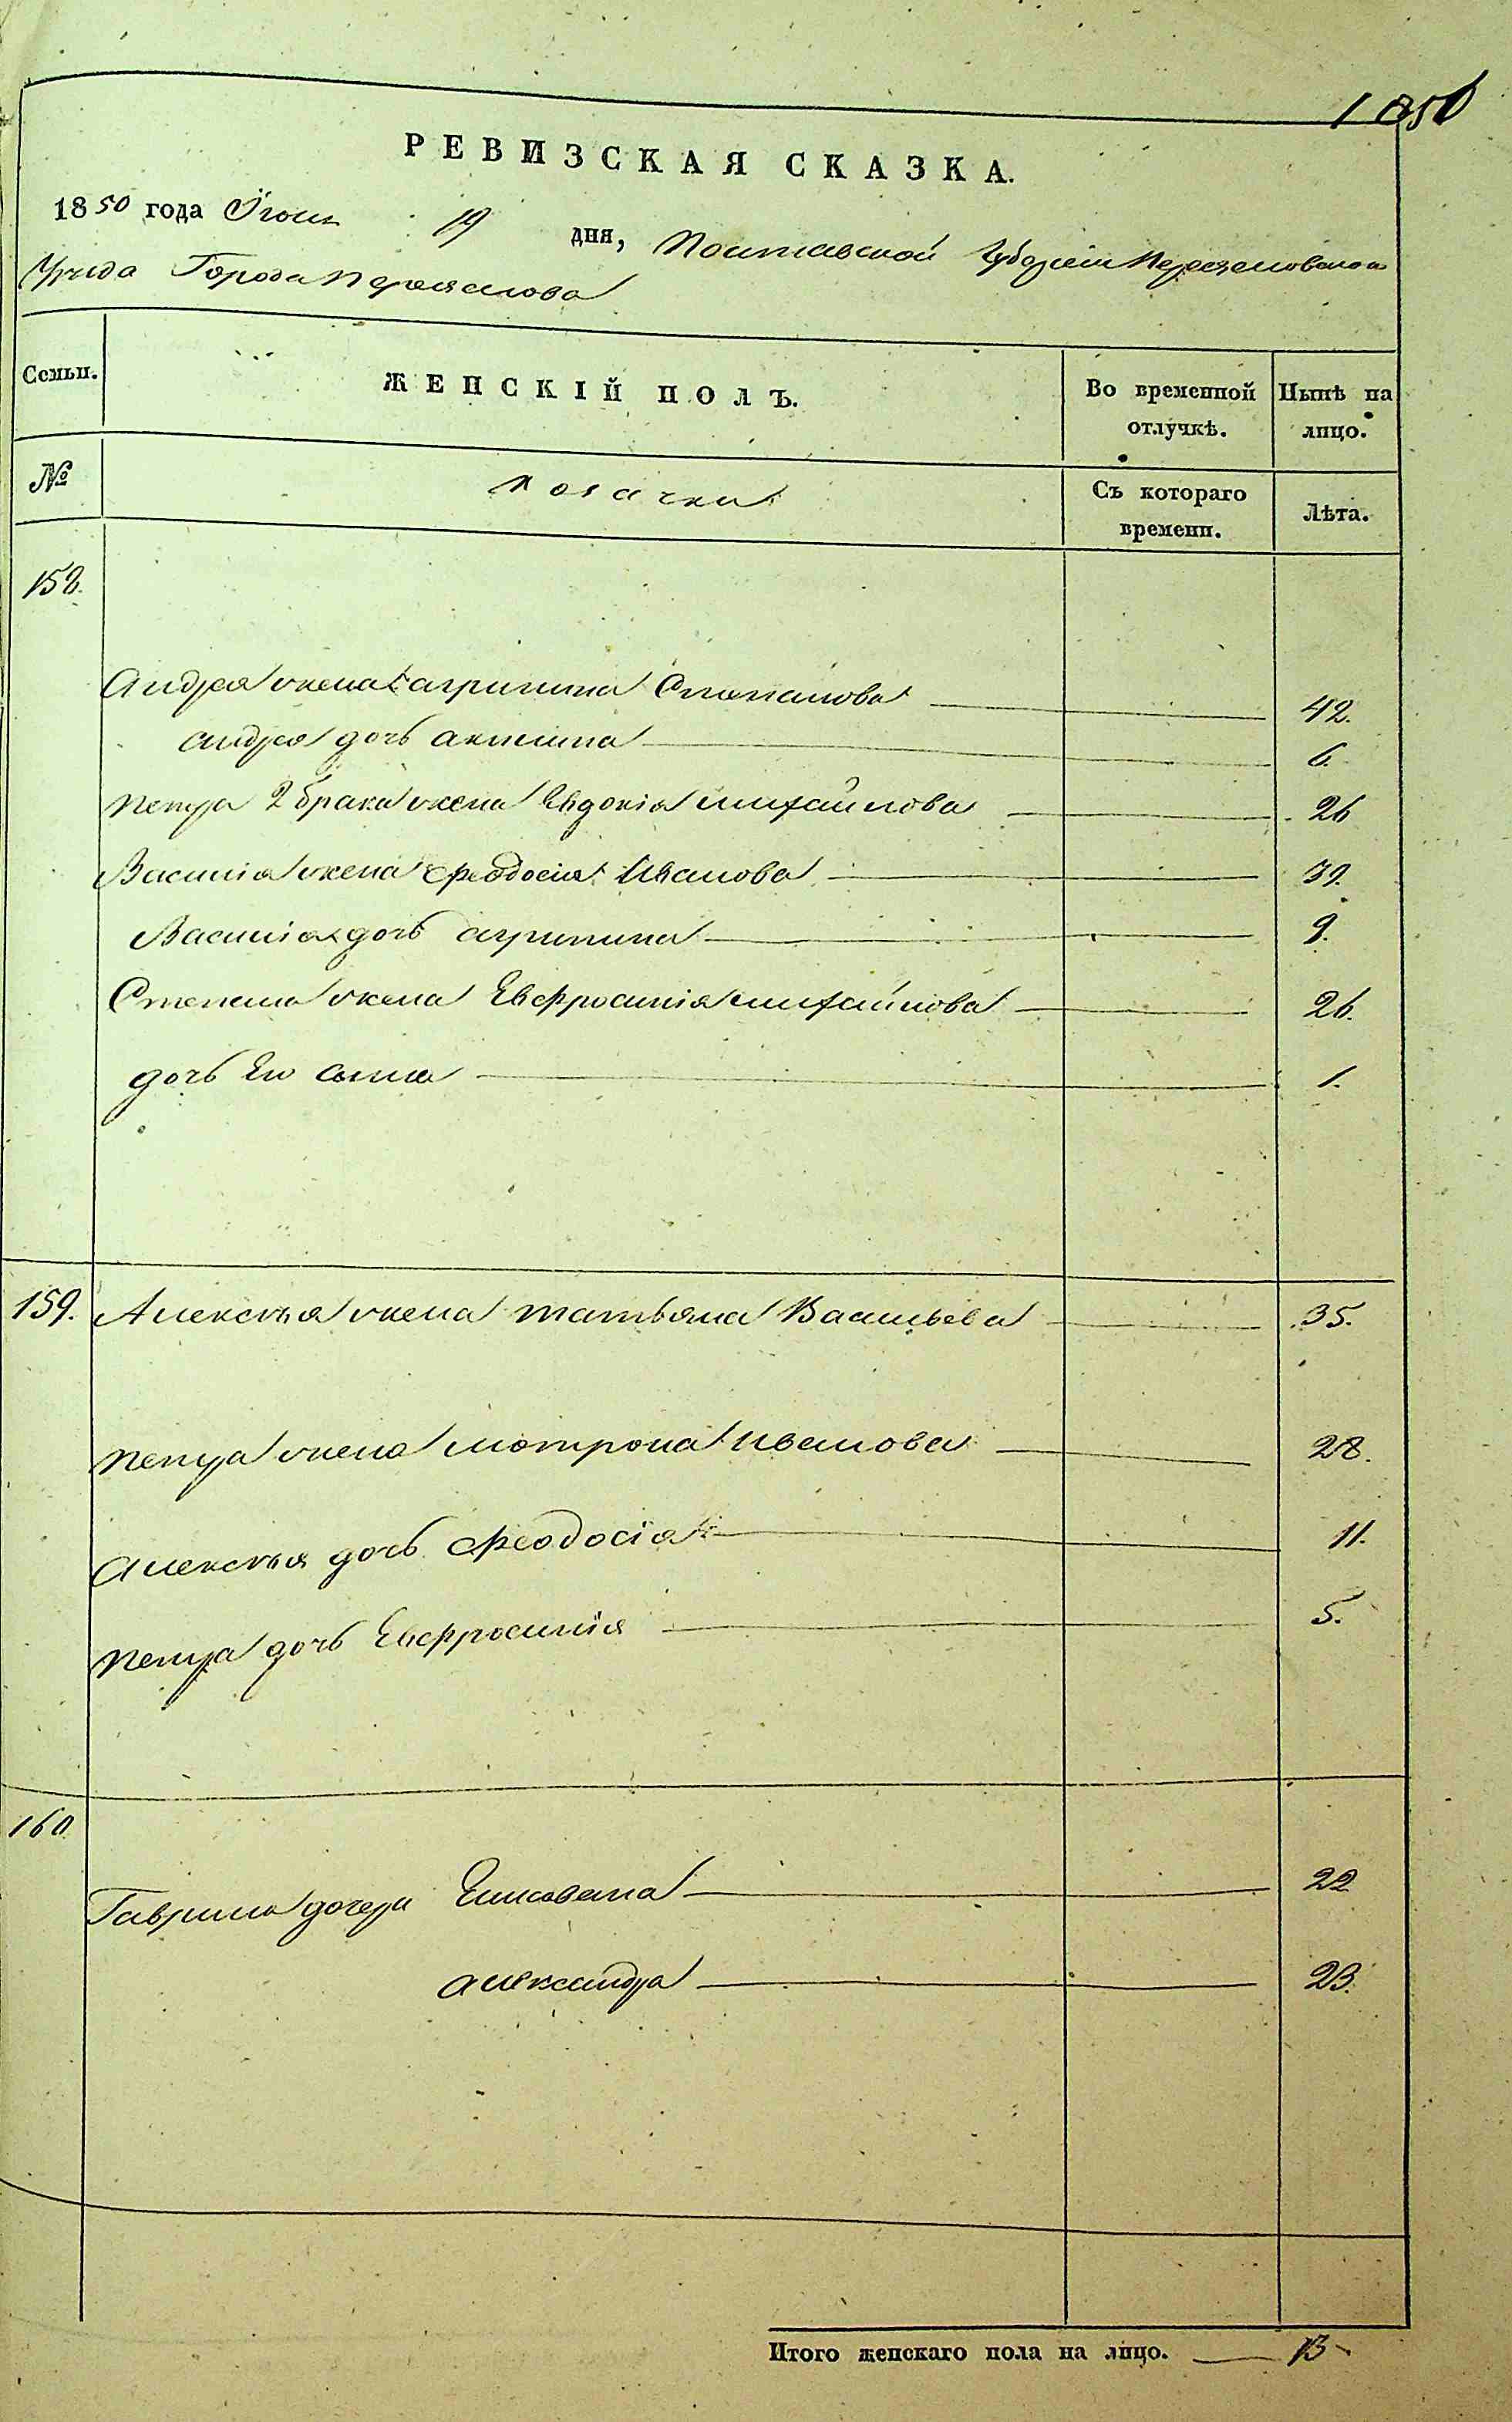 1850
РЕВИЗСКАЯ СКАЗКА.
1850 года Июня 19 дня, Полтавской Губерніи Переяславскаго
Уезда Города Переяслова
Семьи. ЖЕНСКІЙ ПОЛЪ. Во временной отлучкѣ. Нынѣ на лицо.
№ Козачки Съ котораго времени. Лѣта.
158.
Андрея жена агрипина Степанова 42.
андрея дочь акилина 6.
Петра 2 брака жена Евдокія михайлова 26
Василія жена Феодосія Иванова 39.
Василія дочь агрипина 9.
Степана жена Евфросинія михайлова 26.
дочь Его анна 1.
159. Алексѣя жена татьяна Васильева 35.
Петра жена мотрона иванова 28.
алексѣя дочь Феодосія 11.
Петра дочь Евфросинія 5.
160
Гаврила дочери Елисавета 22
александра 23.
Итого женскаго пола на лицо. 13